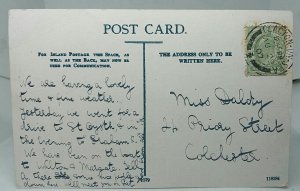 POST CARD.
FOR INLAND POSTAGE THE BACK, AS
WELL AS THE BACK, MAY NOW BE
USED FOR COMMUNICATION.
THE ADDRESS ONLY TO BE
WRITTEN HERE.
We are having a lovely
time & fine weather.
Yesterday we went for a
drive to St Osyth & in
the evening to Clacton
We have been on the boat
to Walton & Margate.
down
Miss Daldy
Priory Street
Colchester